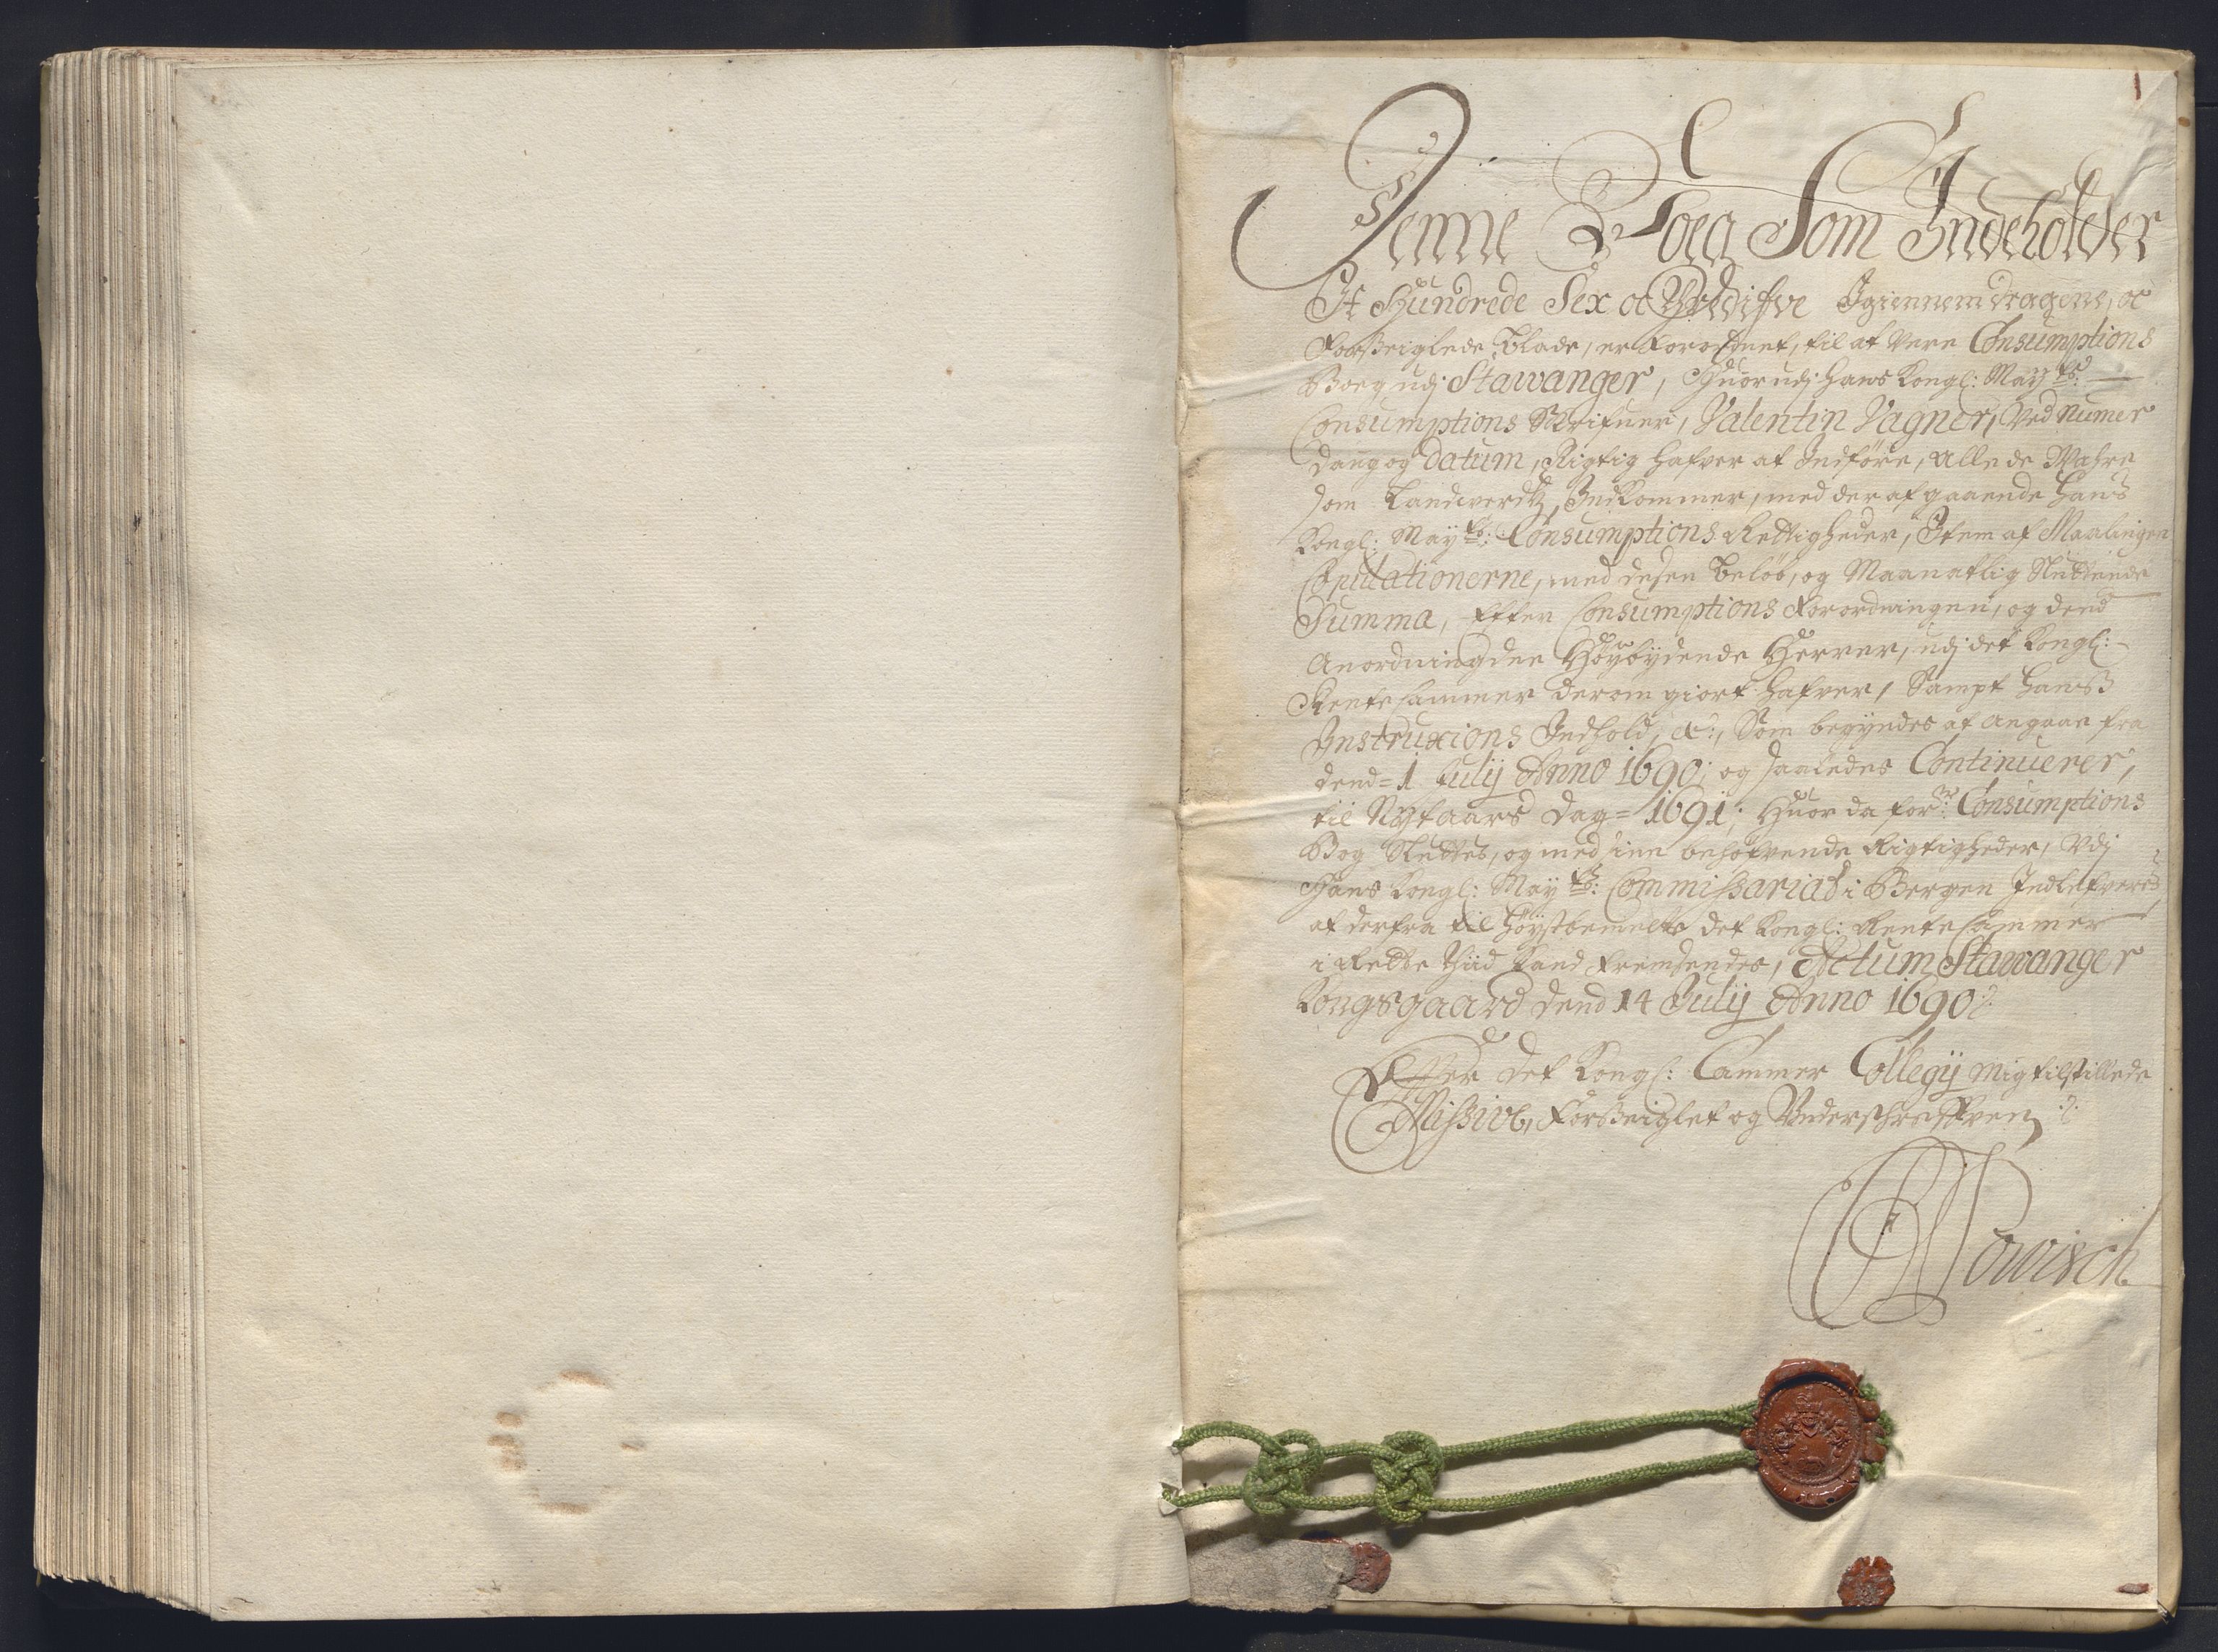 Denne Boeg Som Indeholder
Et Hundrede Sex oc Tredifve Igiennemdragene, oc
Forseiglede Blade, er forordnet, til at Vere Consumptions
Boeg udj Stawanger, Huorudj hans Kongl: Maytz:
Consumptions Skrifuer, Valentin Vagner, Ved Numer
Dag og Datum, Rigtig hafver at Indføre, alle de Wahre
som Landwerdtz, Indkommer, med deraf gaaende Hans
Kongl: Maytz: Consumptions Rettigheder, Item af Maalingen
Copulationerne, med desen Beløb, og Maanatlig Sluttende
Summa, Effter Consumptions Forordningen, og dend
Anordning den Høybydende Herrer, udj det Kongl:
Rentecammer derom giort hafver, Sampt hanß
Instruxions Indhold, &:, Som begyndes at angaae fra
dend = 1 Julij Anno 1690; og saaledes Continuerer,
til Nytaars Dag = 1691; Huor da forne: Consumptions
Bog Sluttes, og med sine behøfvende Rigtigheder, Udj
Hans Kongl: Maytz: Commissariat i Bergen Indlefveres,
at derfra til Høystbemelte det Kongl: Rentecammer
i Rette Tiid kand fremsendes, Actum Stawanger
Kongsgaard dend 14 Julij Anno 1690
Effter det Kongl: Cammer Collegij mig tilstillede
Missive, Forseiglet og Underschrefven
Powisch